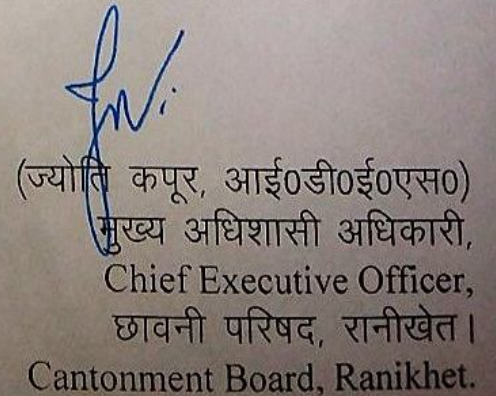 (ज्योति कपूर, आई0डी0ई0एस0)
मुख्य अधिशासी अधिकारी,
Chief Executive Officer,
छावनी परिषद, रानीखेत।
Cantonment Board, Ranikhet.